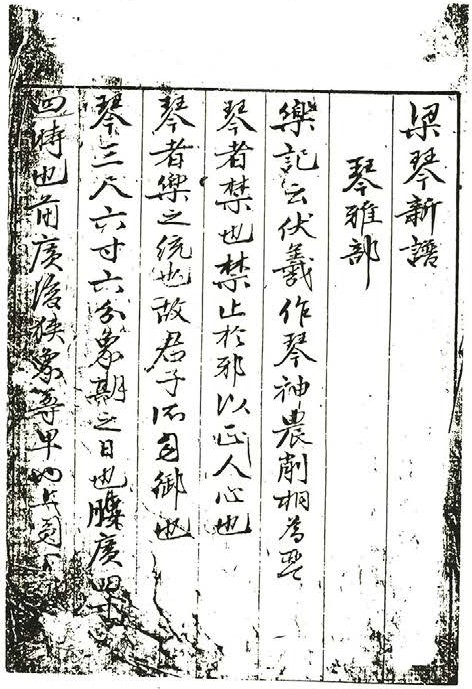 梁琴新譜
琴雅部
樂記云伏羲作琴神農削桐爲琴
琴者禁也禁止於邪以正人心也
琴者樂之統也故君子所自御也
琴三尺六寸六分象期之日也腹廣四寸
四時也前廣後狹象尊卑也上圓下